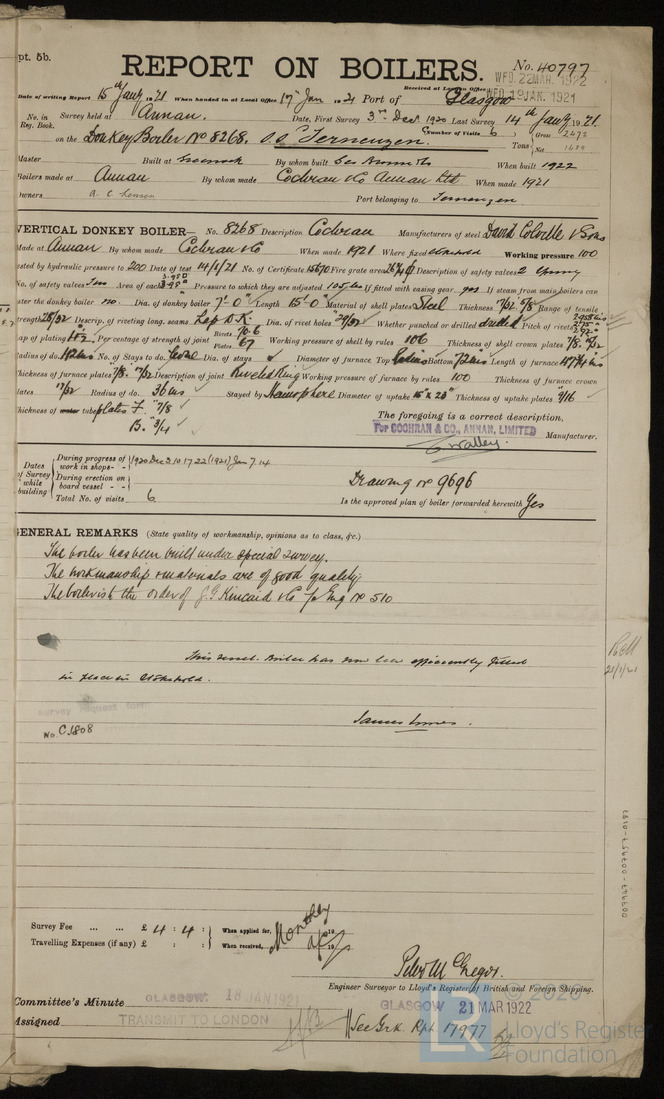 pt. 5b.
REPORT ON BOILERS.
No. 40797
WED. 22 MAR. 1922
Received at London Office WED. 19 JAN. 1921
Date of writing Report 15th Jany 1921 When handed in at Local Office 17th Jan 1921 Port of Glasgow
No. in Reg. Book. Survey held at Annan. Date, First Survey 3rd Dec 1920 Last Survey 14th Jany 1921.
on the Donkey Boiler No 8268. S.S. Terneuzen. (Number of Visits 6) Tons Gross 2472 Net
Master Built at Greenock By whom built When built 1922
Boilers made at Annan By whom made Cochran & Co Annan Ltd When made 1921
Owners Port belonging to Terneuzen
VERTICAL DONKEY BOILER— No. 8268 Description Cochran Manufacturers of steel David Colville & Sons
Made at Annan By whom made Cochran & Co When made 1921 Where fixed Stokehold Working pressure 100
tested by hydraulic pressure to 200 Date of test 14/1/21 No. of Certificate 15670 Fire grate area Description of safety valves 2 Spring
No. of safety valves Two Area of each 3.98" Pressure to which they are adjusted 105 lbs If fitted with easing gear yes If steam from main boilers can
enter the donkey boiler no. Dia. of donkey boiler 7'-0" Length 15'-0" Material of shell plates Steel Thickness 7/32 5/8 Range of tensile
strength 28/32 Descrip. of riveting long. seams Lap D.R. Dia. of rivet holes 29/32 Whether punched or drilled drilled Pitch of rivets
Lap of plating Per centage of strength of joint Rivets 70.6 Plates 67 Working pressure of shell by rules 106 Thickness of shell crown plates
Radius of do. No. of Stays to do. Dia. of stays Diameter of furnace Top Bottom 72 ins Length of furnace
Thickness of furnace plates Description of joint Riveted Ring Working pressure of furnace by rules 100 Thickness of furnace crown
plates 17/32 Radius of do. 36 ins Stayed by Hemisphere Diameter of uptake Thickness of uptake plates 9/16
Thickness of water tube plates F. 7/8 B. 3/4
The foregoing is a correct description,
For COCHRAN & CO., ANNAN, LIMITED
Manufacturer.
Dates of Survey while building
During progress of work in shops - - 1920 Dec 3 10 17 22 (1921) Jan 7. 14
During erection on board vessel - -
Total No. of visits 6
Drawing No 9696
Is the approved plan of boiler forwarded herewith Yes
GENERAL REMARKS (State quality of workmanship, opinions as to class, &c.)
The boiler has been built under special survey.
The workmanship & materials are of good quality.
The boiler is to the order of J. G. Kincaid & Co for Eng No 510
This boiler has now been efficiently fitted
in place in Stokehold.
James Innes.
Survey request form
No. C 1808
21/1/21
003947-003957-0187
Survey Fee ... ... £ 4 : 4 :
When applied for, Monthly
Travelling Expenses (if any) £ : :
When received,
Peter McGregor.
Engineer Surveyor to Lloyd's Register of British and Foreign Shipping.
Committee's Minute GLASGOW. 18 JAN 1921
GLASGOW 21 MAR 1922
Assigned TRANSMIT TO LONDON
See Grk. Rpt. 17977
© 2020
Lloyd's Register
Foundation